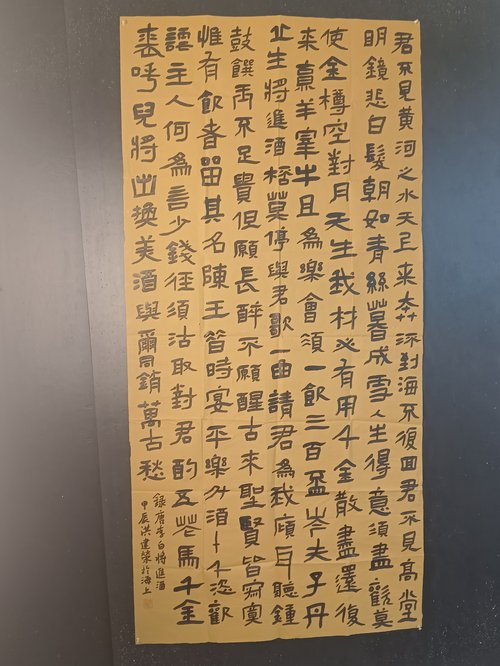 君不見黃河之水天上来奔流到海不復回君不見高堂
明鏡悲白髮朝如青絲暮成雪人生得意須盡歡莫
使金樽空對月天生我材必有用千金散盡還復
来烹羊宰牛且為樂會須一飲三百盃岑夫子丹
丘生將進酒杯莫停與君歌一曲請君為我傾耳聽鐘
鼓饌玉不足貴但願長醉不願醒古來聖賢皆寂寞
惟有飲者留其名陳王昔時宴平樂斗酒十千恣歡
謔主人何為言少錢徑須沽取對君酌五花馬千金
裘呼兒將出換美酒與爾同銷萬古愁
錄唐李白將進酒
甲辰洪建榮於海上